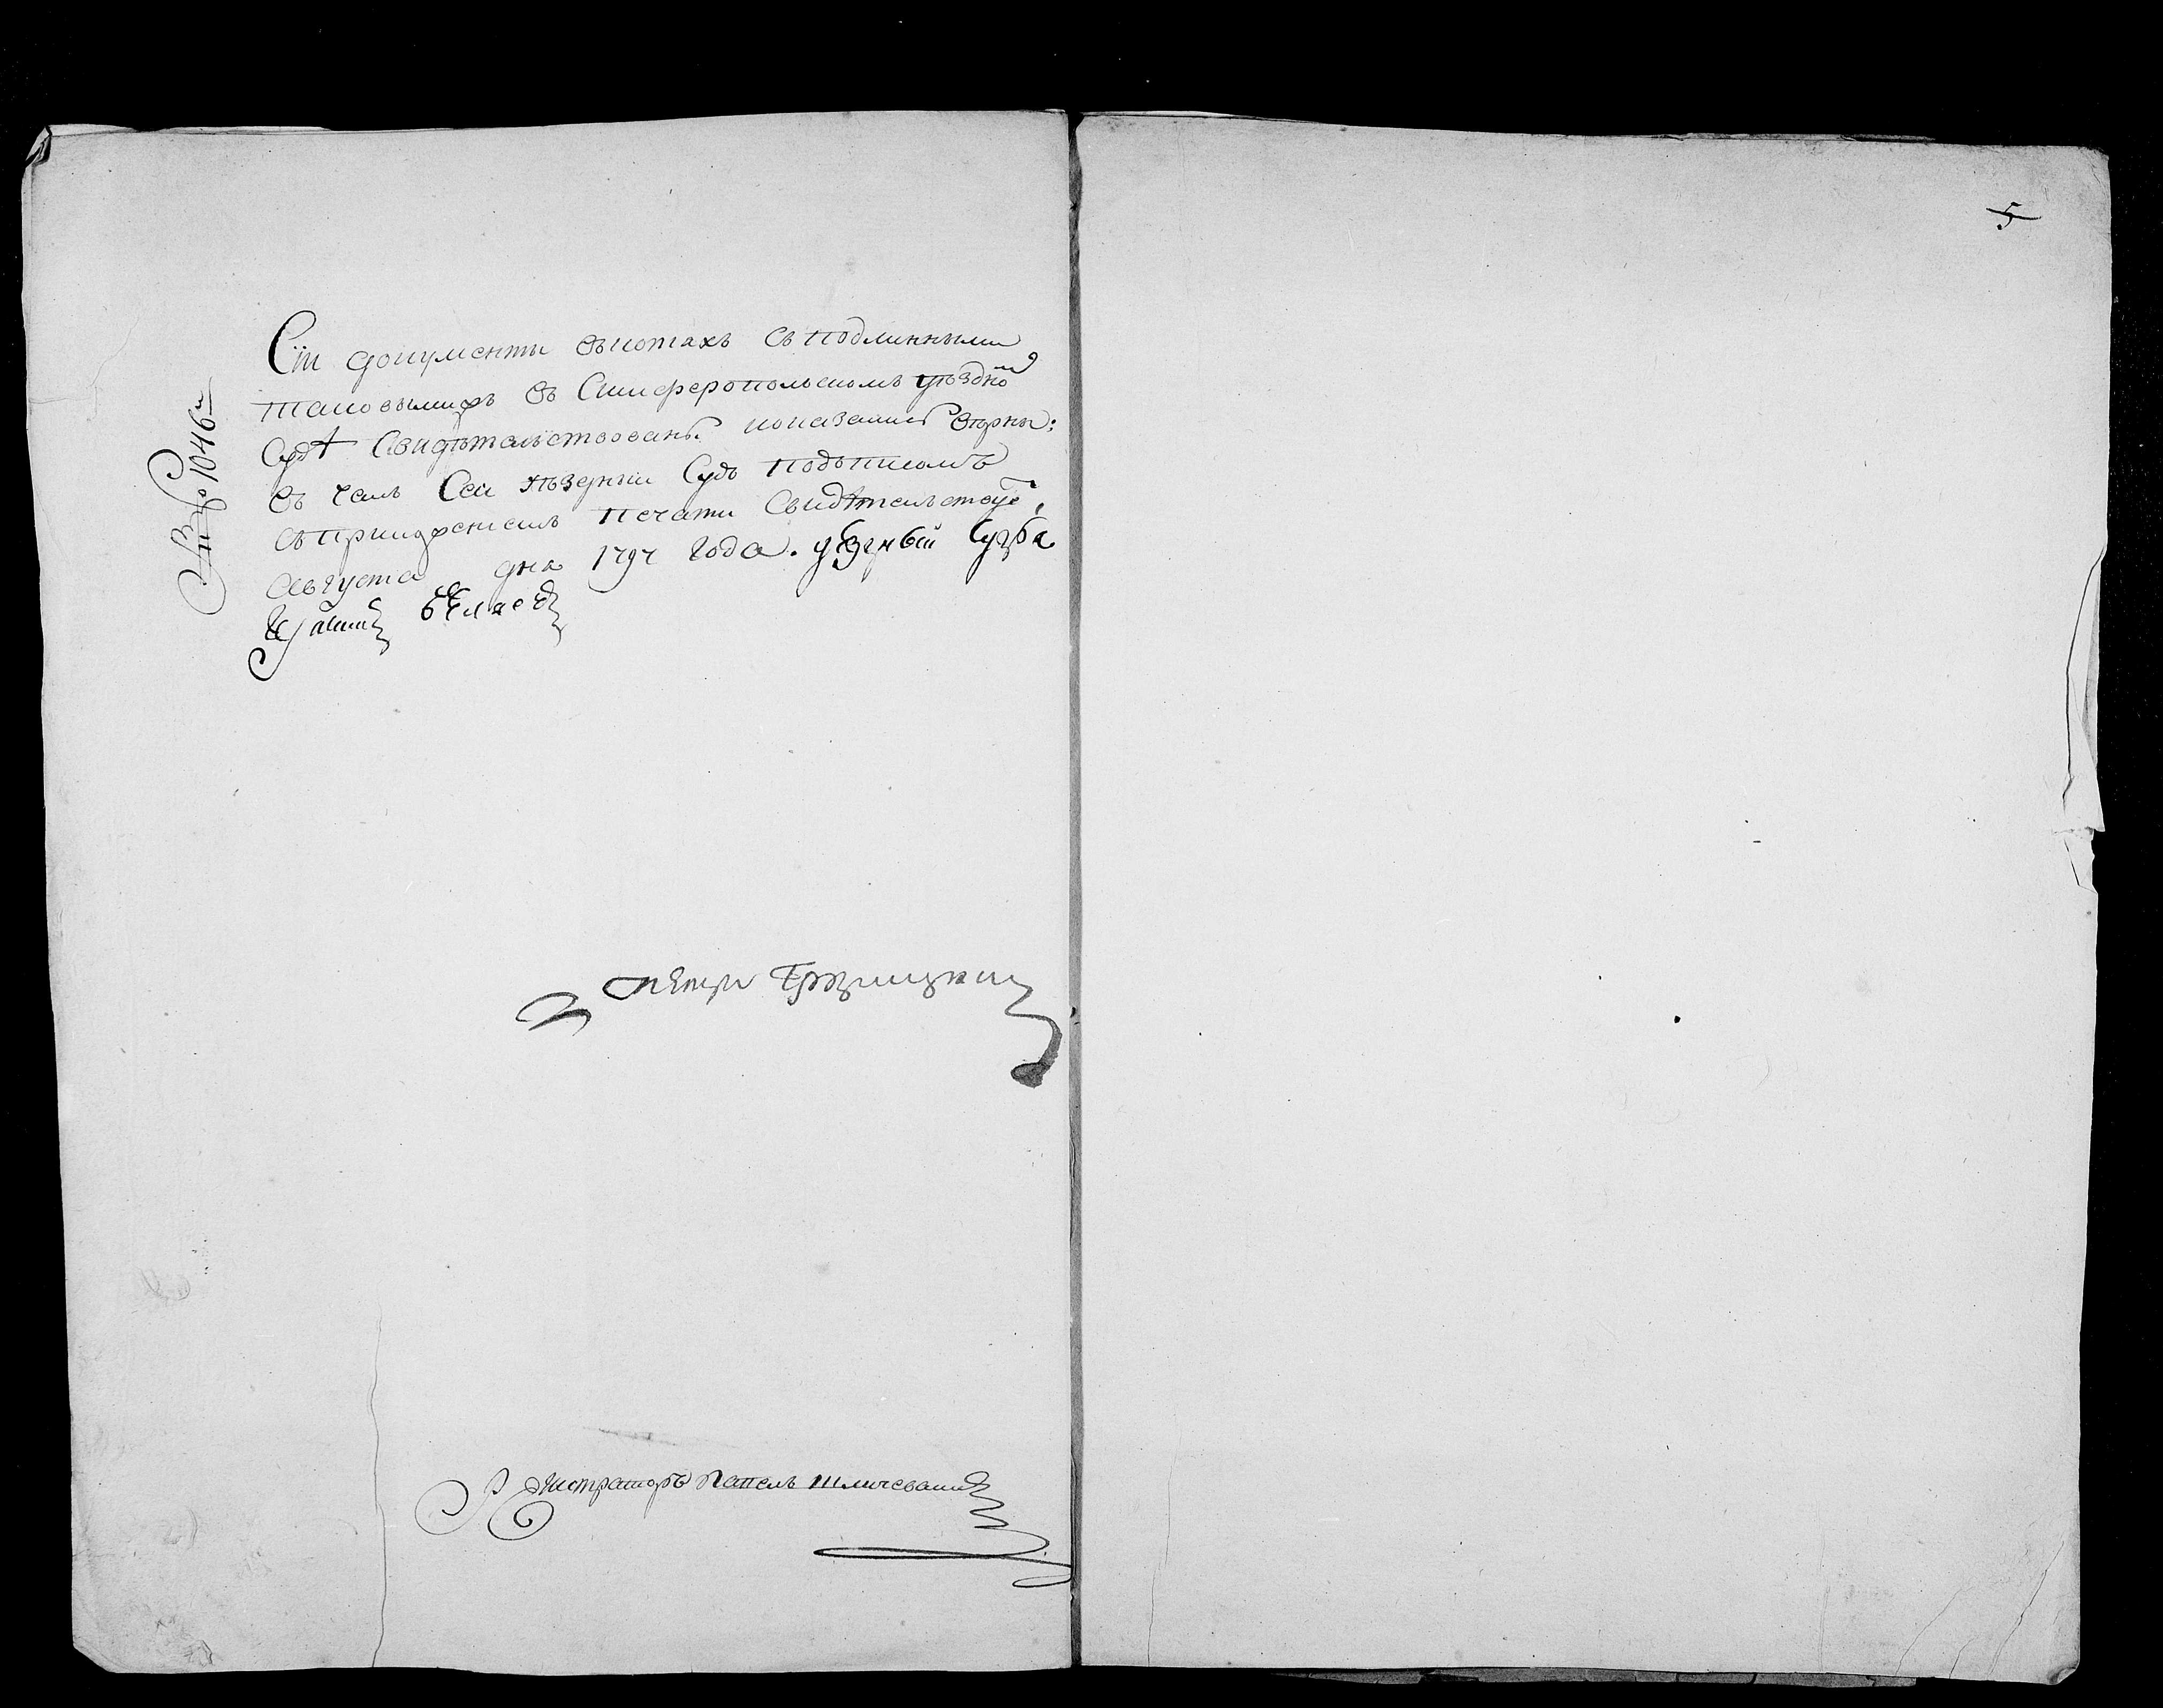 5
№ 1046й
Сїи документы въкопїахъ съ подлинными
таковымижъ въ Симферопольскомъ уѣздномъ
судѣ свидѣтельствованы и оказались вѣрны:
въ чемъ сей уѣздный судъ подписомъ
съ приложенїемъ печати свидѣтельствуетъ,
августа дня 1797 года. уѣздный судья
Беляевъ
Петръ
Регистраторъ Павелъ